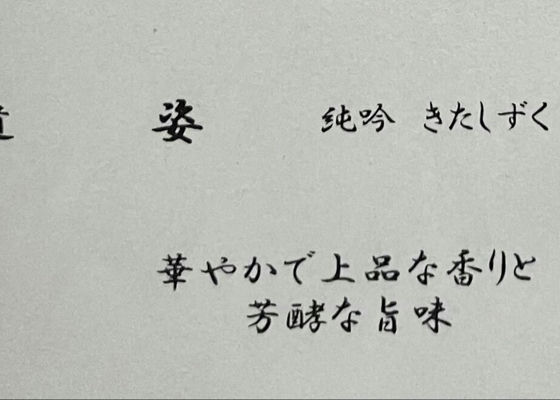 道 姿 純吟 きたしずく
華やかで上品な香りと
芳酵な旨味